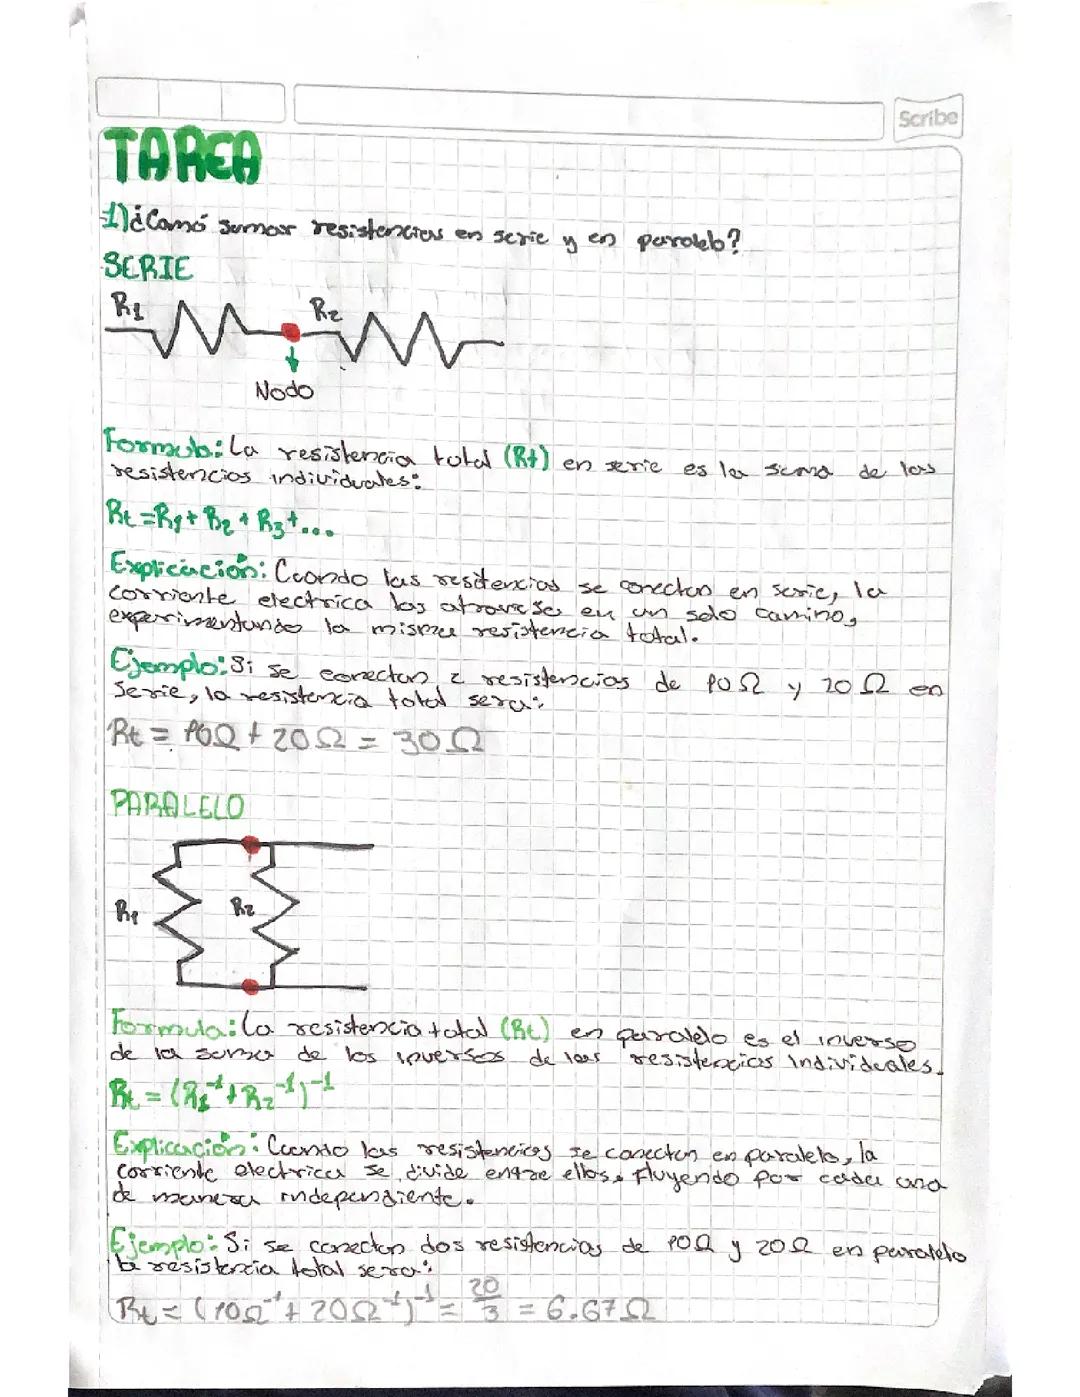 Scribe
TAREA
1) ¿Comó sumar resistencias en serie y en paralelo?
SERIE
R1 R2
Nodo
Formula: La resistencia total (Rt) en serie es la suma de las
resistencias individuales:
Rt = R1 + R2 + R3 + ...
Explicación: Cuando las resitencias se conectan en serie, la
corriente electrica las atraviesa en un solo camino,
experimentando la misma resistencia total.
Ejemplo: Si se conectan 2 resistencias de 10Ω y 20Ω en
serie, la resistencia total sera:
Rt = 10Ω + 20Ω = 30Ω
PARALELO
R1 R2
Formula: La resistencia total (Rt) en paralelo es el inverso
de la suma de los inversos de las resistencias individuales.
Rt = (R1⁻¹ + R2⁻¹)⁻¹
Explicación: Cuando las resistencias se conectan en paralelo, la
corriente electrica se divide entre ellas, fluyendo por cada una
de manera independiente.
Ejemplo: Si se conectan dos resistencias de 10Ω y 20Ω en paralelo
la resistencia total sera:
Rt = (10Ω⁻¹ + 20Ω⁻¹)⁻¹ = 20/3 = 6.67Ω